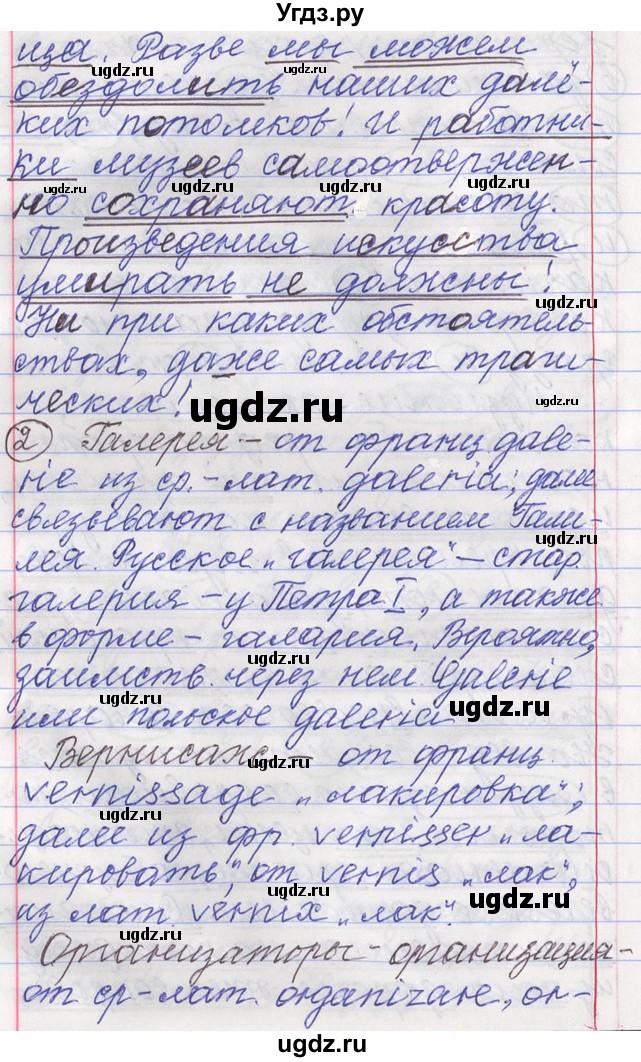 Угдз.ру
ица. Разве мы можем
обездолить наших далё-
ких потомков! И работни-
ки музеев самоотвержен-
но сохраняют красоту.
Произведения искусства
умирать не должны!
Ни при каких обстоятель-
ствах, даже самых траги-
ческих!
ugdz.ru
2 Галерея – от франц. gale-
rie из ср.-лат. galeria; далее
связывают с названием Гали-
лея. Русское „галерея“ – стар.
галерия – у Петра I, а также
в форме – галария. Вероятно,
заимств. через нем. Galerie
или польское galeria
Вернисаж – от франц.
vernissage „лакировка“;
далее из фр. vernisser „ла-
кировать“, от vernis „лак“,
из лат. vernix „лак“.
Организаторы – организация –
от ср-лат. organizare, ор-
ugdz.ru